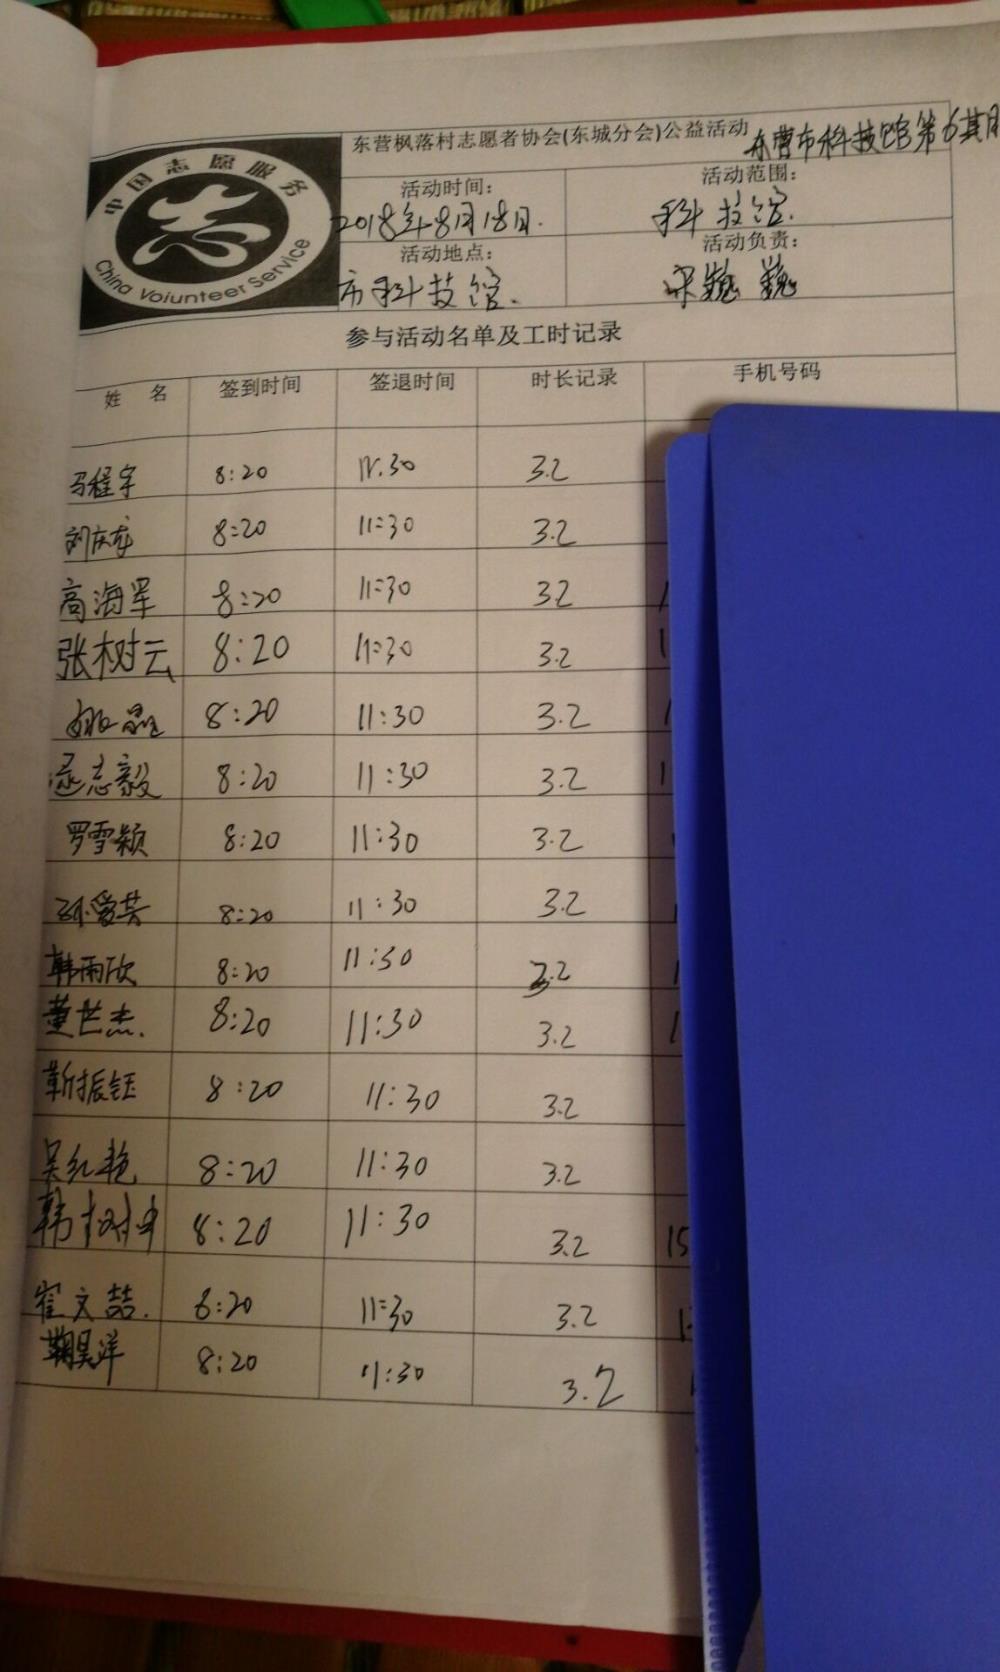 中国志愿服务
China Voiunteer Service
东营枫落村志愿者协会(东城分会)公益活动 东营市科技馆第6期
活动时间: 活动范围:
2018年8月18日. 科技馆.
活动地点: 活动负责:
市科技馆. 宋巍巍
参与活动名单及工时记录
姓 名 签到时间 签退时间 时长记录 手机号码
马程宇 8:20 11:30 3.2
刘庆龙 8:20 11:30 3.2
高海军 8:20 11:30 3.2
张树云 8:20 11:30 3.2
姚晶 8:20 11:30 3.2
志毅 8:20 11:30 3.2
罗雪颖 8:20 11:30 3.2
孙爱英 8:20 11:30 3.2
韩雨欣 8:20 11:30 3.2
董世杰. 8:20 11:30 3.2
靳振钰 8:20 11:30 3.2
吴红艳 8:20 11:30 3.2
韩树坤 8:20 11:30 3.2 15
崔文喆. 8:20 11:30 3.2
鞠昊洋 8:20 11:30 3.2